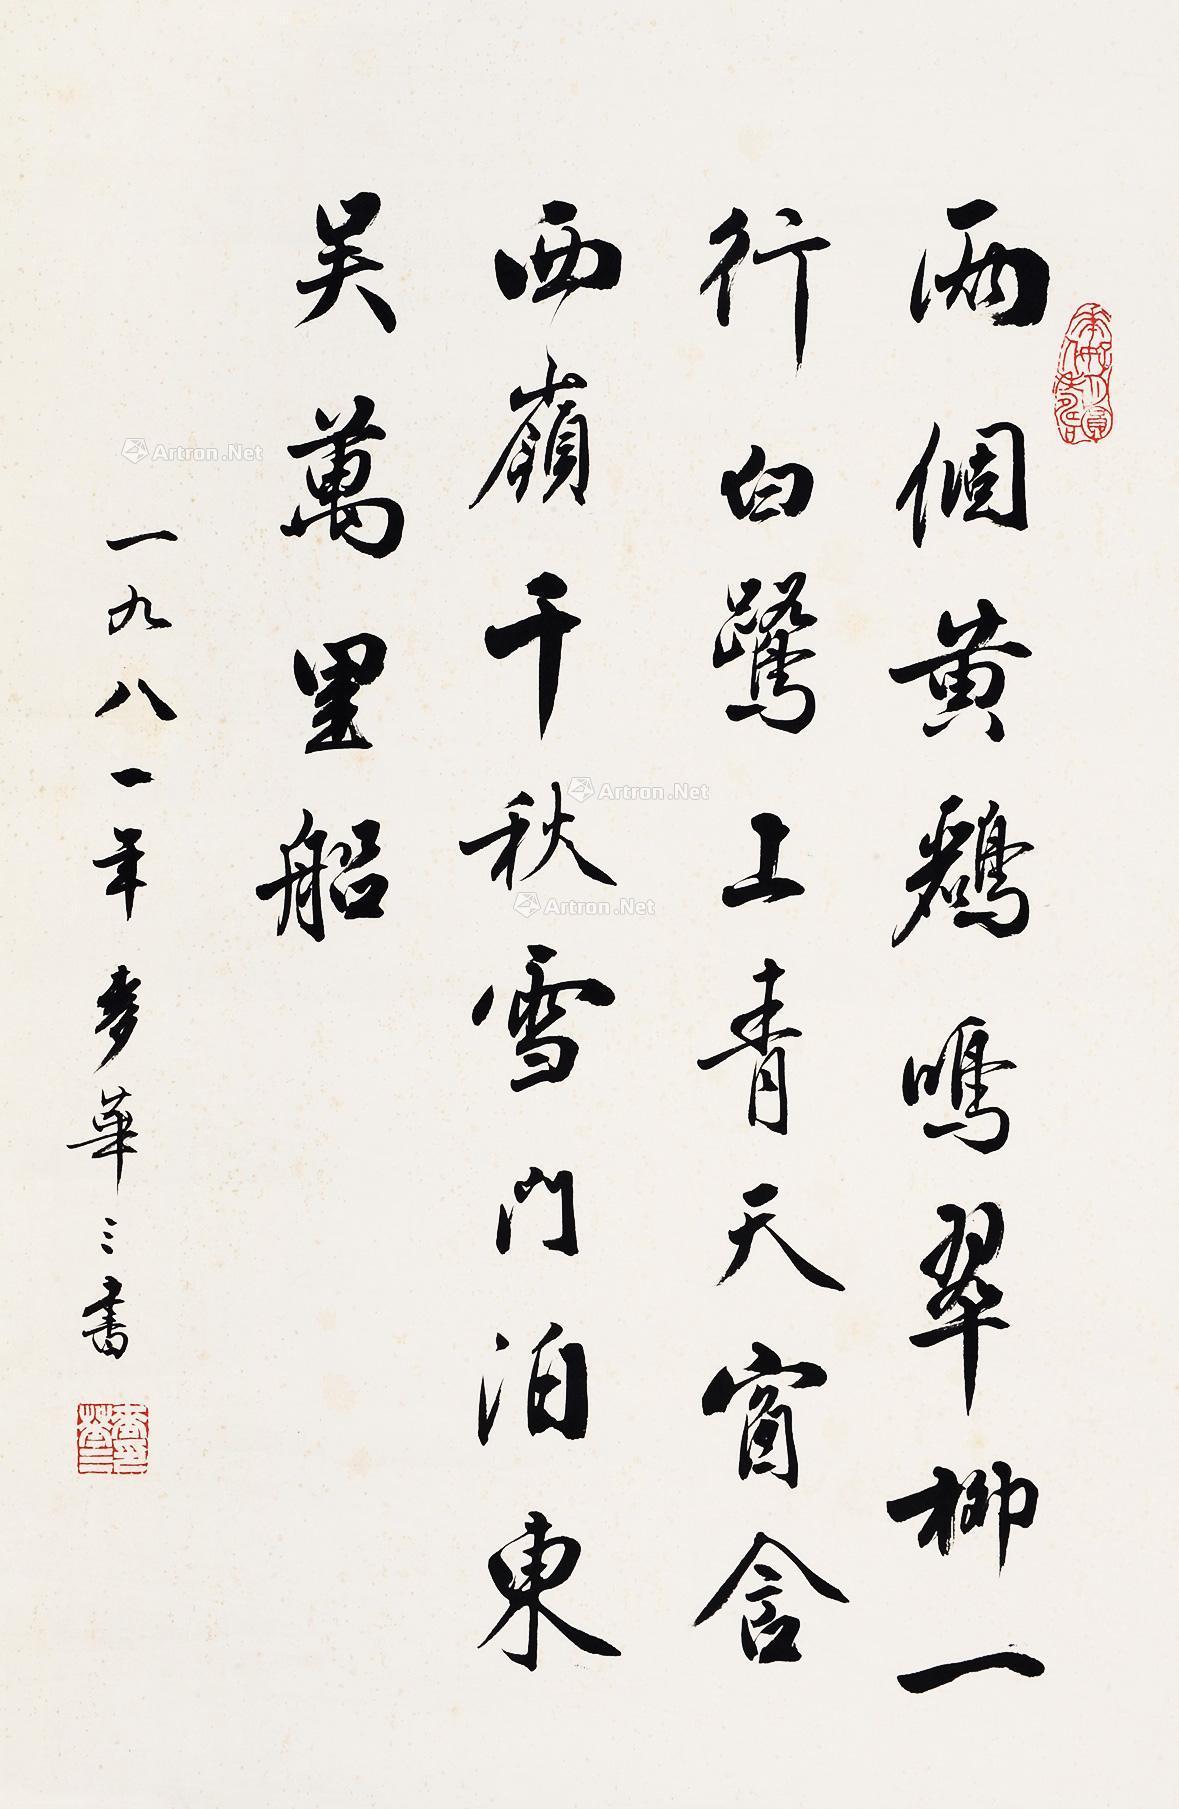 兩個黃鸝鳴翠柳一
行白鷺上青天窗含
西嶺千秋雪門泊東
吳萬里船
一九八一年麥華三書
麥華三印
Artron.Net
Artron.Net
Artron.Net